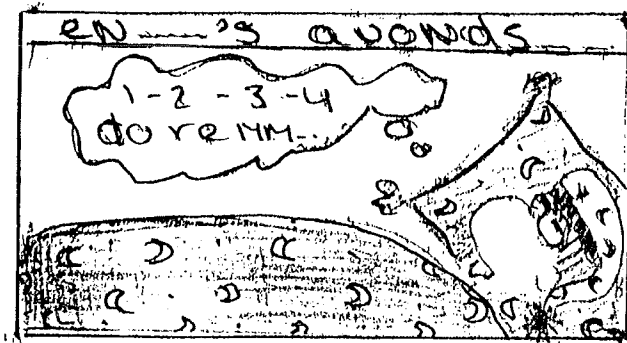 en......'s avonds......
1-2-3-4
do re MM...